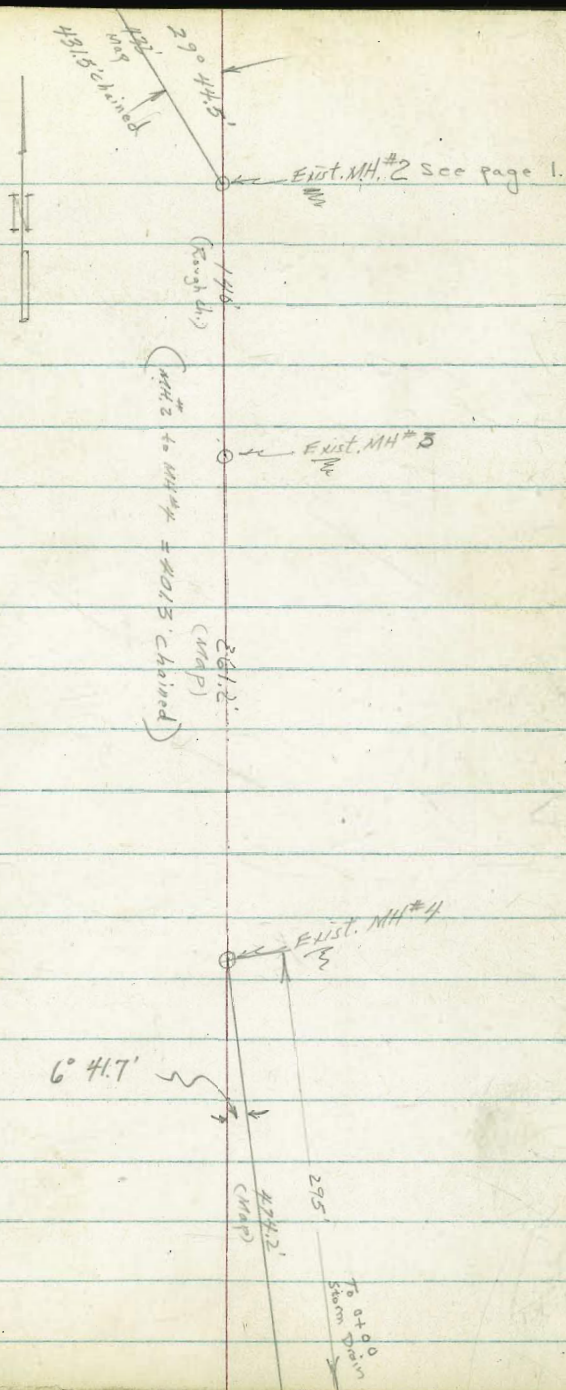 29° 44.5'
432'
Map
431.5' chained
Exist. MH. #2 see page 1.
140'
(Rough Ch.)
Exist. MH #3
(MH.#2 to MH#4 = 401.3' chained)
261.2'
(Map)
Exist. MH #4
6° 41.7'
295'
474.2'
(Map)
To 0+00
Storm Drain